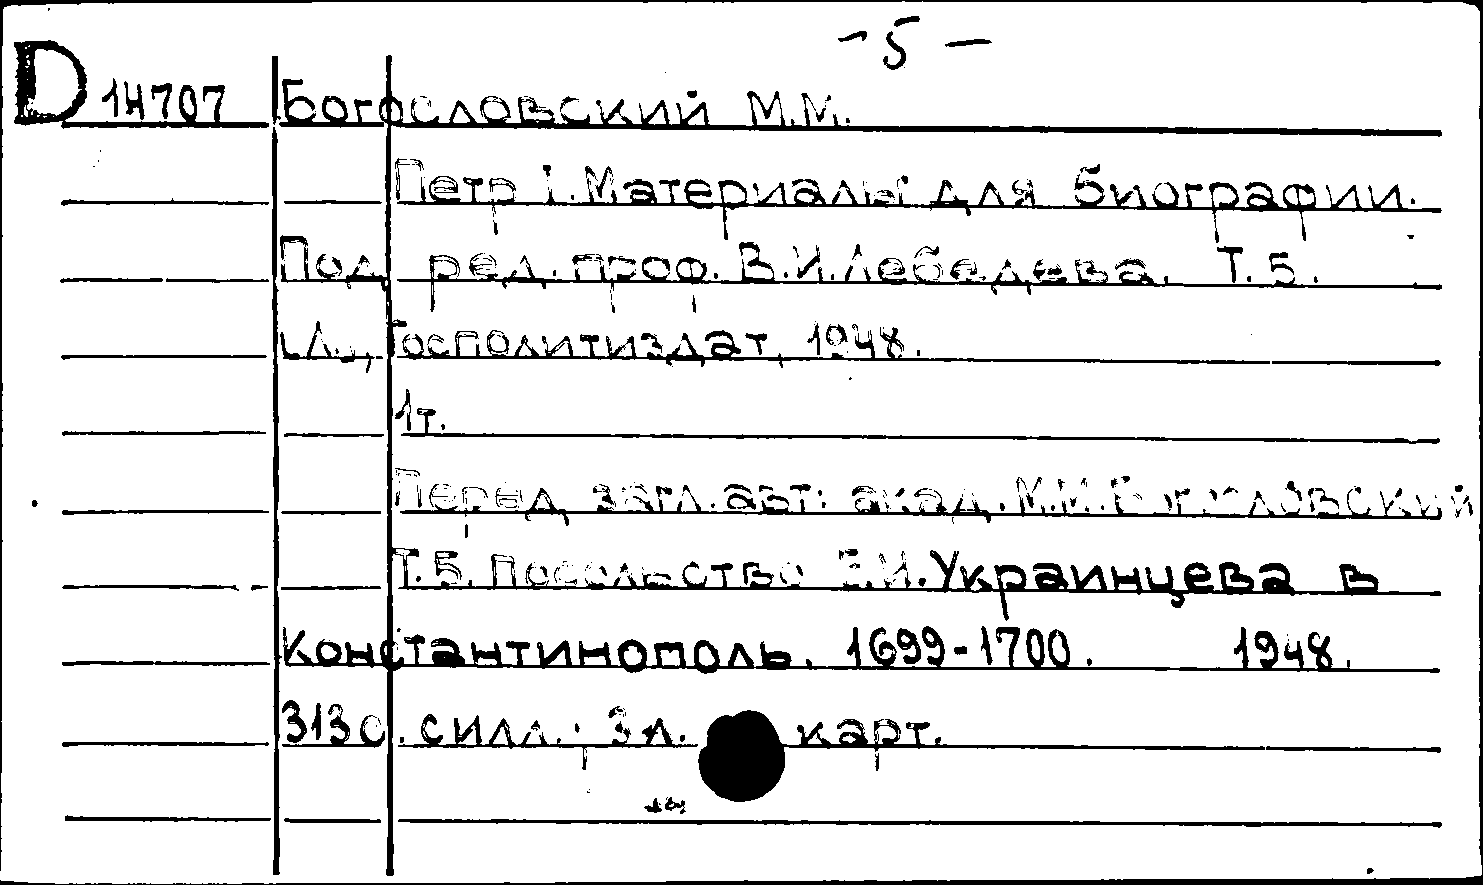 -5-
D 14707 Богословский М.М.
Петр I. Материалы для биографии.
Под ред. проф. В.И.Лебедева. Т.5.
Госполитиздат, 1948.
1т.
Перед загл. авт: акад. М.М.Богословский
Т.5. Посольство Е.И.Украинцева в
Константинополь. 1699-1700. 1948.
313с. силл.; 3л. карт.